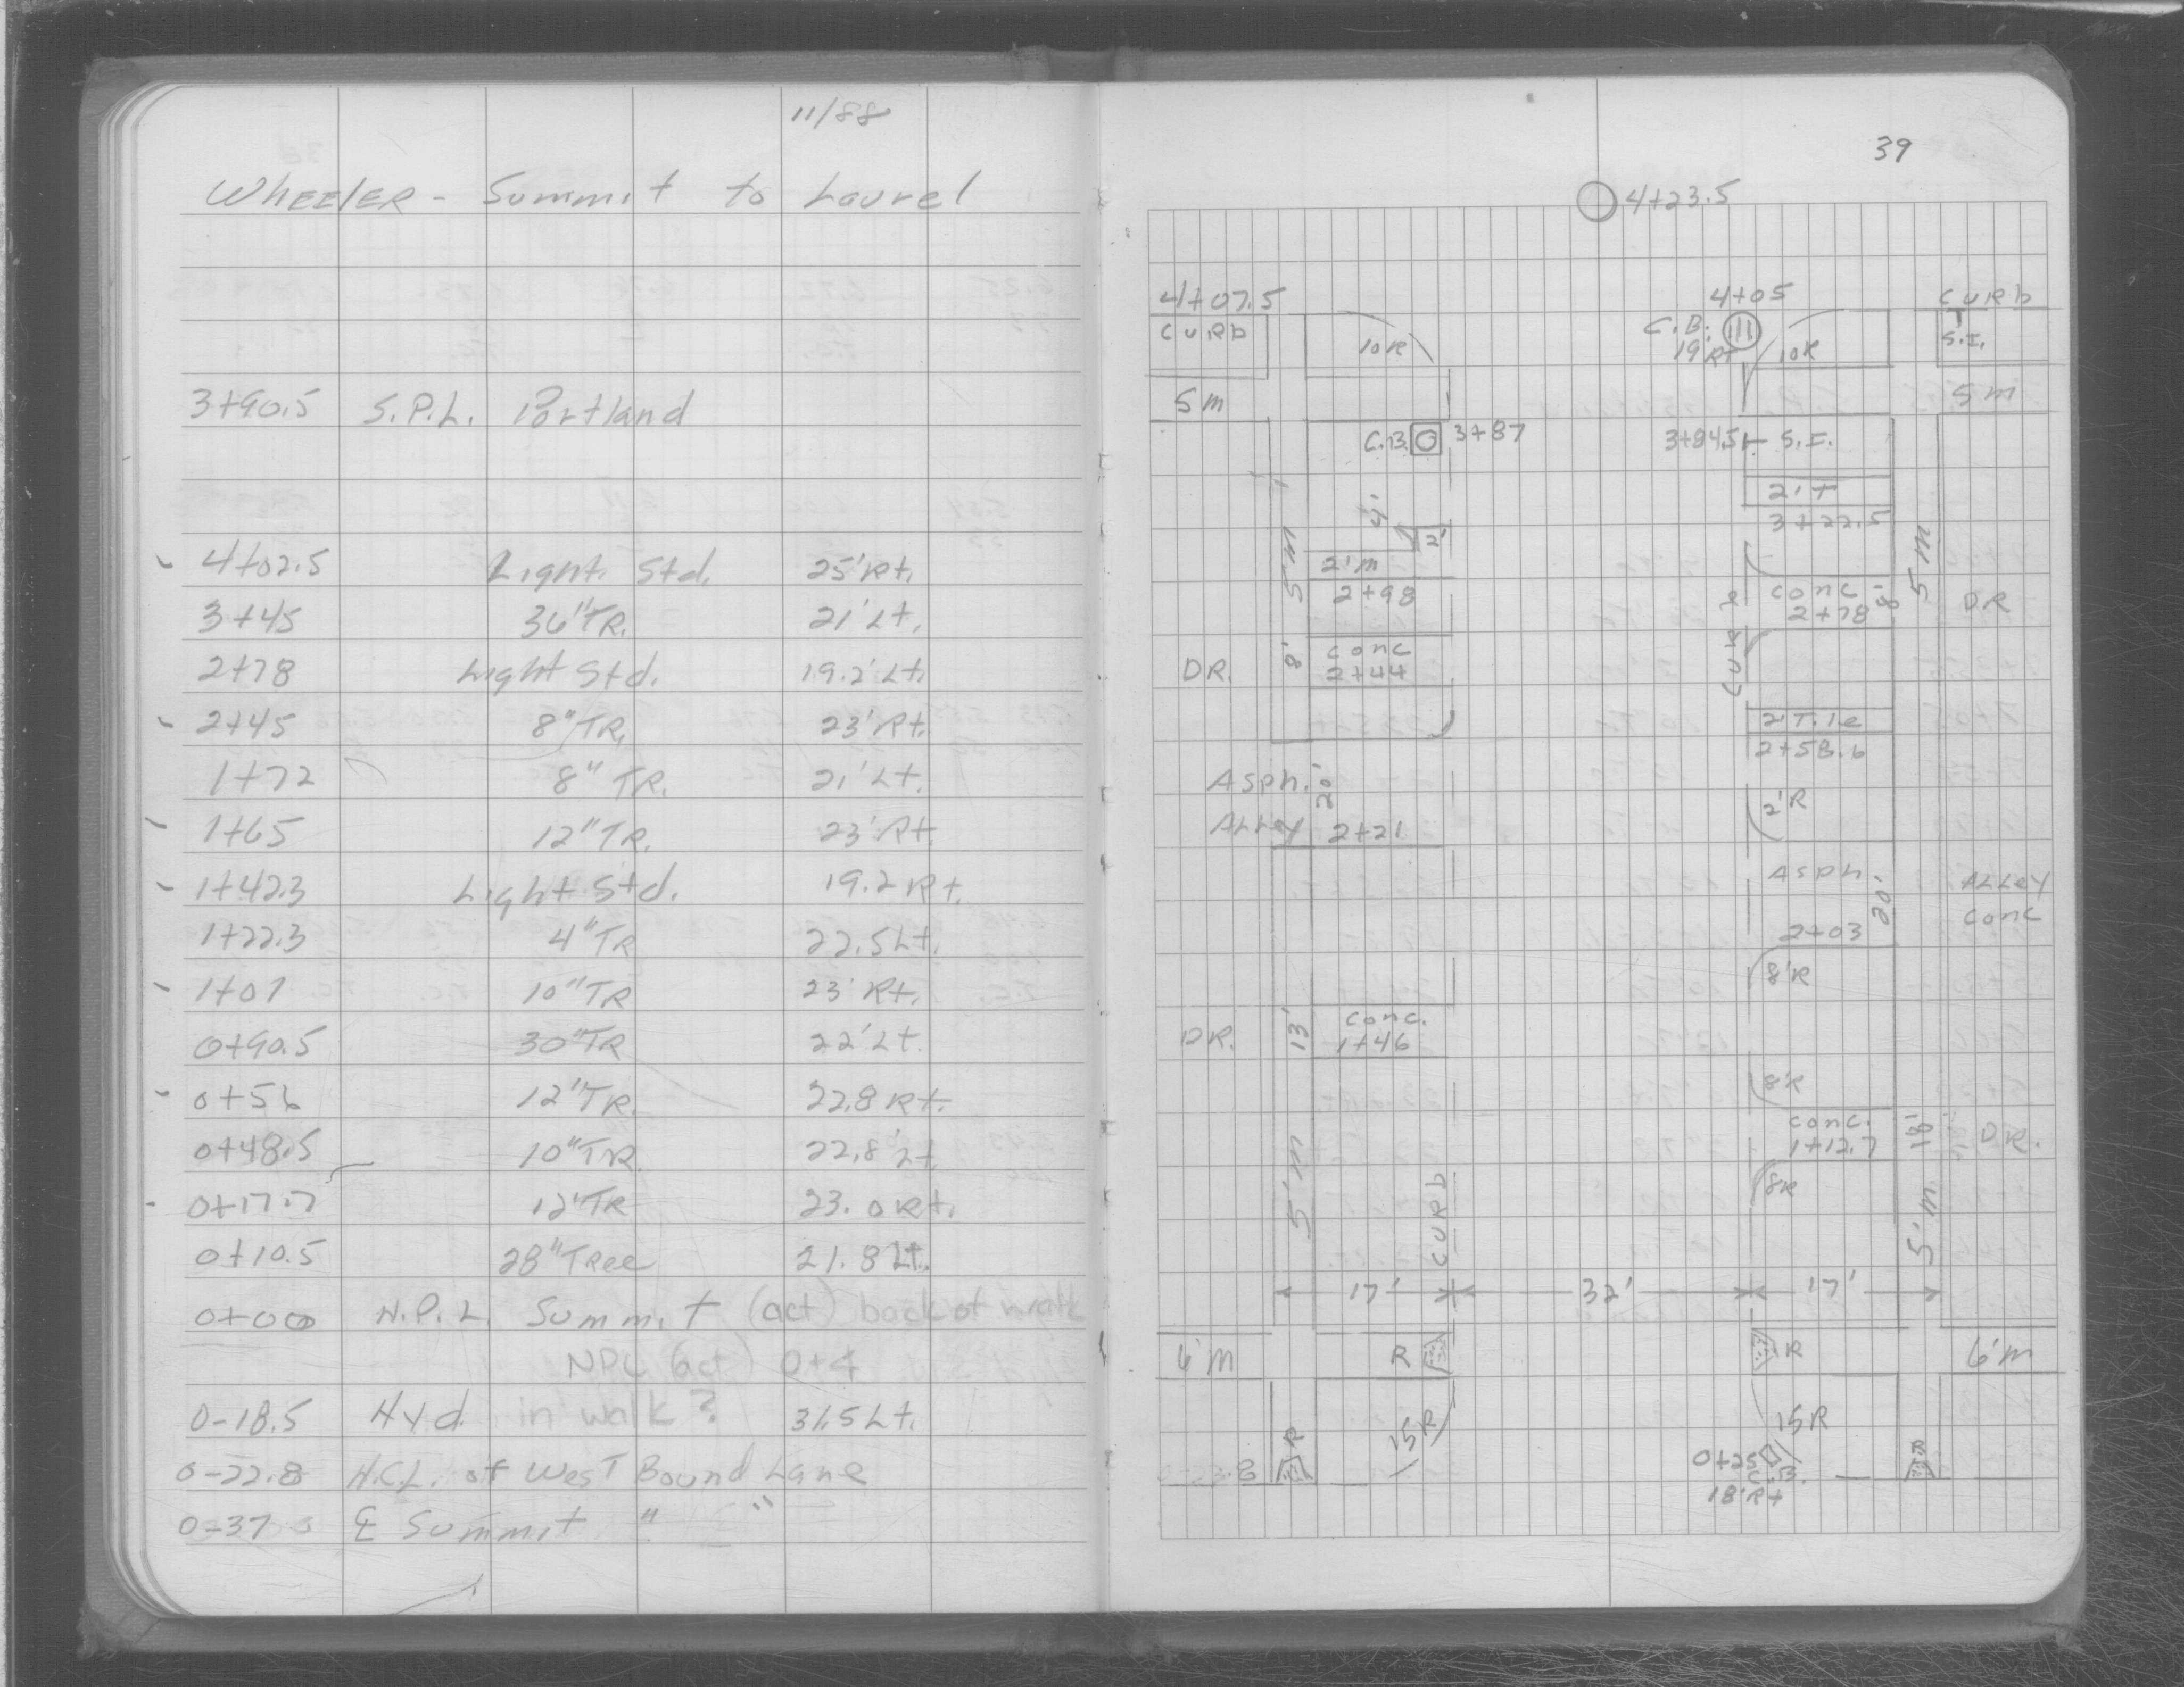 11/88
Wheeler - Summit to Laurel
3+90.5 S.P.L. Portland
4+02.5 Light. Std. 25' Rt.
3+45 36" TR. 21' Lt.
2+78 Light Std. 19.2' Lt.
2+45 8" TR. 23' Rt.
1+72 8" TR. 21' Lt.
1+65 12" TR. 23' Rt.
1+42.3 Light Std. 19.2 Rt.
1+22.3 4" TR 22.5 Lt.
1+07 10" TR 23' Rt.
0+90.5 30" TR 22' Lt.
0+56 12" TR. 22.8 Rt.
0+48.5 10" TR. 22.8' Lt.
0+17.7 12" TR 23.0 Rt.
0+10.5 28" Tree 21.8 Lt.
0+00 N.P.L. Summit (act) back of walk
NPL (act) 0+4
0-18.5 Hyd. in walk? 31.5 Lt.
0-22.8 N.C.L. of West Bound Lane
0-37 ℄ Summit " "
39
4+23.5
4+07.5 4+05 curb
curb 10R C.B. 19' Rt 10R S.I.
5m 5m
C.B. 3+87 3+84.5 S.I.
2' T
4' 3+22.5
2'
5m 2'm 5m
2+98 conc 8' DR
2+78
curb
DR. 8' conc
2+44
2' Tile
2+58.6
Asph. 20' 2'R
Alley 2+21
Asph. 20' Alley
conc
2+03
8'R
DR. 13' conc.
1+46
8'R
conc. 18' DR.
1+12.7
5'm curb 8R 5'm
17' 32' 17'
6'm R R 6'm
R 15R 15R R
0+25 C.B.
18' Rt